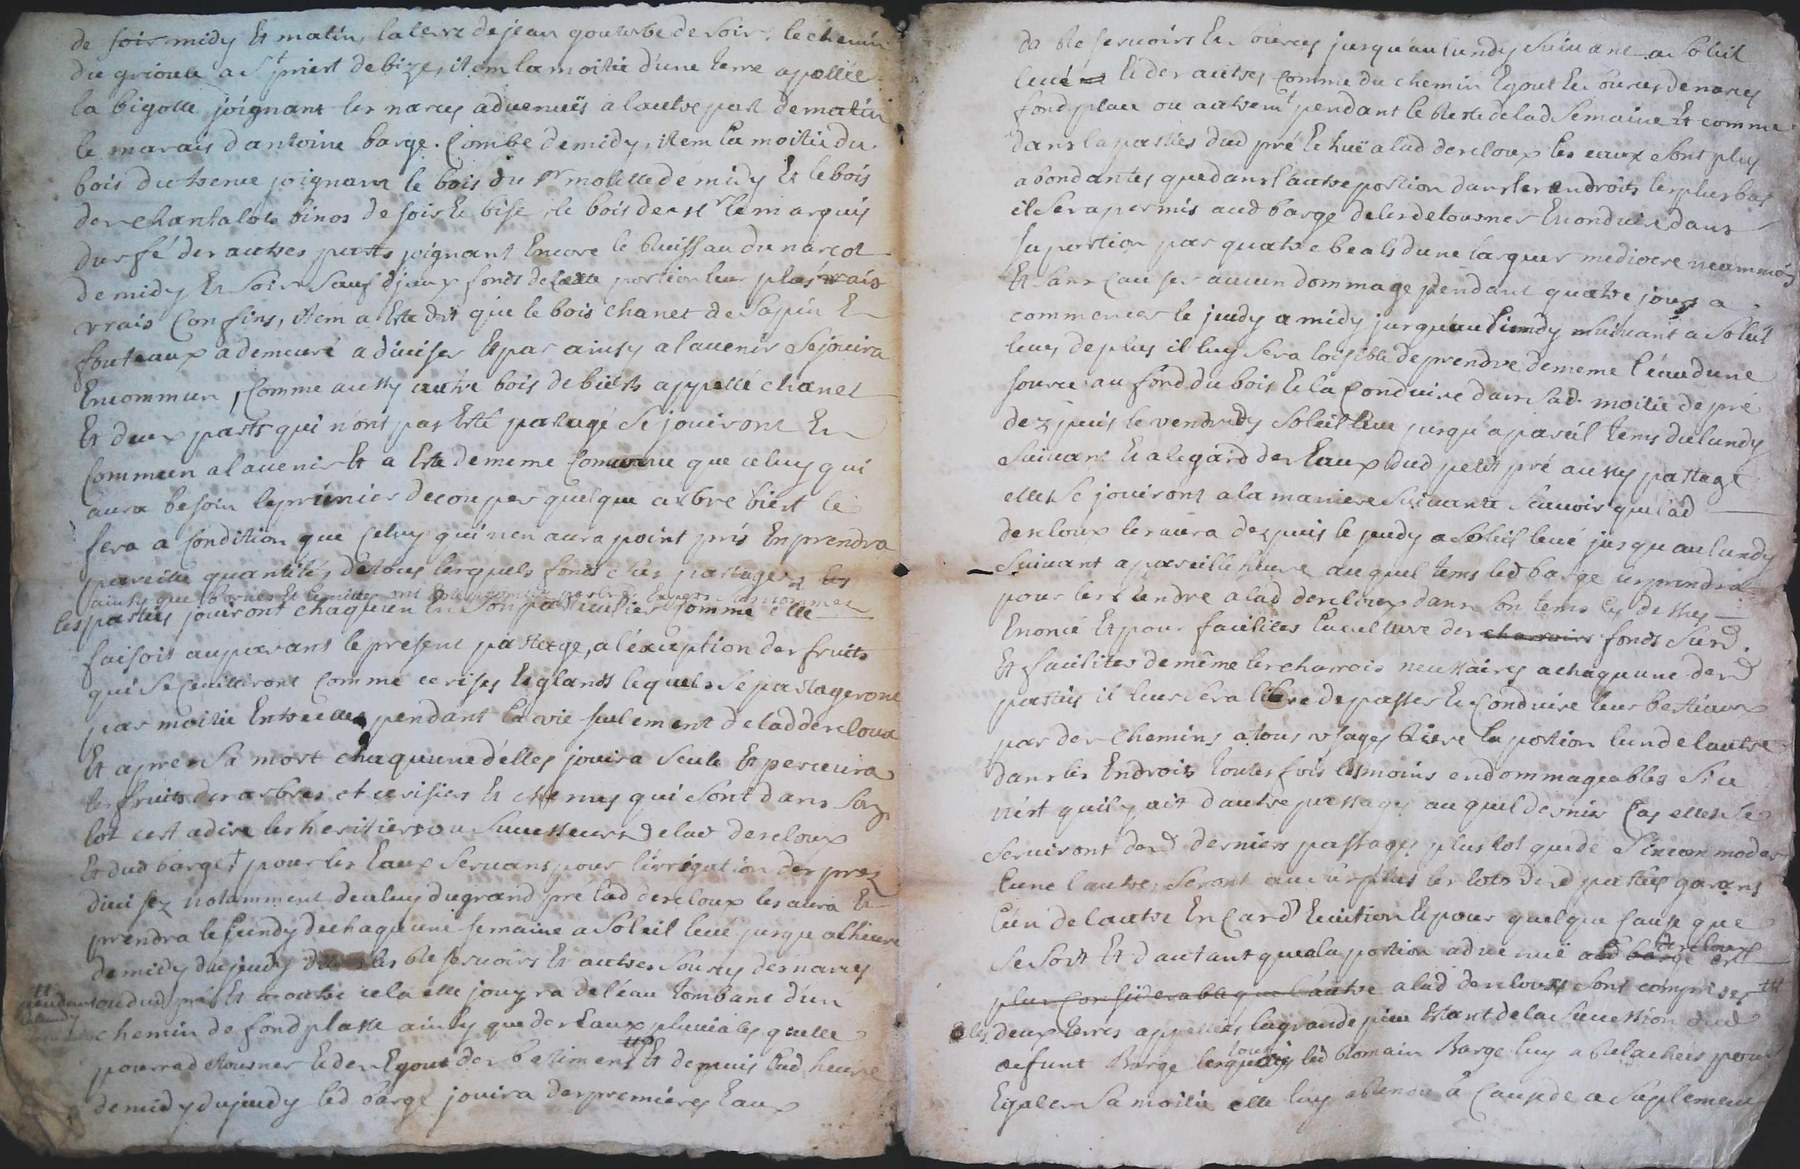 de soir midy Et matin, la terre de jean gourbe de soir, le chemin
du grioulle a St priest de bize, item la moitié d'une terre apellée
la bigotte joignant les narces advenuës a l'autre part de matin
le marais d'antoine barge. Combe de midy, item la moitié du
bois du joignant le bois du Sr molette de midy Et le bois
der chantalou binos de soir Et bise, le bois de Mr le marquis
durfé der autres parts joignant Encore le Ruissau du narcot
de midy Et soir sauf djceux fonds de cette portion leur plus vrais
vrais Confins, item a Este dit que le bois chanet de sapin Et
fouteaux a demeuré a diviser Et par ainsy a l'avenir se jouira
En commun, Comme aussy autre bois de appellé chanet
Et deux parts qui n'ont pas Esté partagé se jouiront En
Commun a l'avenir Et a Este de meme Convenu que celuy qui
aura besoin le premier de couper quelque arbre le
fera a condition que celuy qui n'en aura point pris En prendra
pareille quantité, de tous lesquels fonds cies partages les
ainsy que
les parties jouiront chaqu'en En son particulier Comme elle
faisoit auparavant le present partage, a l'exception der fruits
qui se Cuilliront Comme cerises Et glands lequels se partageront
par moitié Entre elles pendant la vie seulement de lad dercloux
Et apres sa mort chaquune d'elles jouira seule Et percevra
les fruits der arbres et cerisiers Et chenes qui sont dans son
lot c'est a dire les heritiers ou successeurs de lad dercloux
Et dud barge † pour les Eaux servans pour l'irrigation der prez
divisez notamment de celuy du grand pre lad dercloux les aura Et
prendra le Lundy de chaquune semaine a soleil levé jusqu'a l'heure
de midy du jeudy les Reservoirs Et autres sources der narces
pendant
ou dud pré Et a outre cela elle jouyra de l'eau tombant d'un
chemin de fond platte ainsy que der Eaux pluviales qu'elle
pourra detourner Et der Egout der batiments Et depuis lad heure
de midy du jeudy led barge jouira der premieres Eaux
de Reservoirs Et sources jusqu'au lundy suivant a soleil
levé Et der autres, Comme du chemin Egout Et sources de narces
fond platte ou autremt pendant le Reste de lad semaine Et comme
dans la parties dud pré Echuë a lad dercloux les eaux sont plus
abondantes que dans l'autre portion dans les endroits les plus bas
il sera permis aud barge de les detourner Et conduire dans
sa portion par quatre beals d'une largeur mediocre neammois
Et sans causer aucun dommage pendant quatre jours a
commencer le jeudy a midy jusqu'au lundy suivant a soleil
levé, de plus il luy sera loisible de prendre de meme l'eau d'une
source au fond du bois Et la Conduire dans sad. moitié de pré
dez puis le vendredy soleil leve jusqu'a pareil tems du lundy
suivant Et a l'egard der Eaux dud petit pré aussy partagé
elles se jouiront a la maniere suivante scavoir que lad
dercloux les aura dez puis le jeudy a soleil levé jusqu'au lundy
suivant a pareille heure au quel tems led barge les prendra
pour les rendre a lad dercloux dans son tems cy dessus
Enoncé Et pour faciliter la culture der charrois fonds surd.
Et faciliter de même les charrois necessaires a chaquune derd
parties il leur sera libre de passer Et Conduire leur bestiaux
par der chemins a tous usages la portion l'un de l'autre
dans les Endroits toutes fois les moins endommageables si ce
n'est qu'il y ait d'autre passages au quel dernier Cas elles se
serviront derd derniers passages plus tot que de s'incommoder
l'une l'autre, seront au surplus les lots derd parties garans
l'un de l'autre En Cas d'Eviction Et pour quelque Cause que
se soit Et d'autant que la portion advenuë a lad barge dercloux est
plus Considerable que l'autre a lad dercloux sont comprises
les deux terres appellées la grande piece Estant de la succession dud
defunt Barge lesquelles led Romain Barge luy a Relachées pour
Egaler sa moitié elle luy a Rendu a Cause de ce suplement